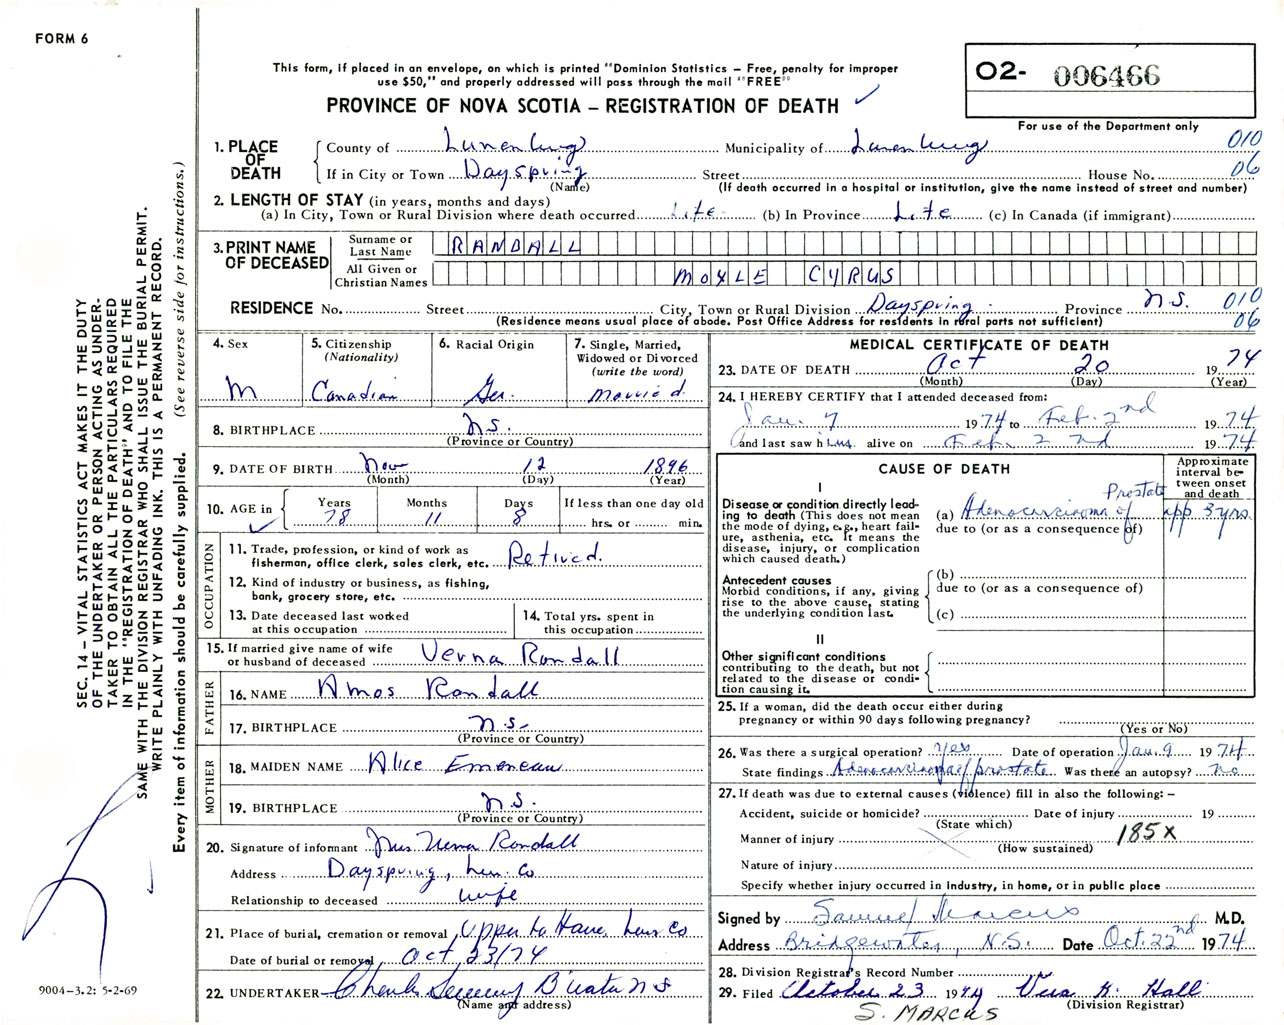 FORM 6
This form, if placed in an envelope, on which is printed "Dominion Statistics – Free, penalty for improper
use $50," and properly addressed will pass through the mail "FREE"
PROVINCE OF NOVA SCOTIA – REGISTRATION OF DEATH
O2- 006466
For use of the Department only
1. PLACE OF DEATH
County of Lunenburg Municipality of Lunenburg 010
If in City or Town Dayspring Street House No. 06
(Name) (If death occurred in a hospital or institution, give the name instead of street and number)
2. LENGTH OF STAY (in years, months and days)
(a) In City, Town or Rural Division where death occurred Life (b) In Province Life (c) In Canada (if immigrant)
3. PRINT NAME OF DECEASED
Surname or Last Name RANDALL
All Given or Christian Names MOYLE CYRUS
RESIDENCE No. Street City, Town or Rural Division Dayspring Province N.S. 010
(Residence means usual place of abode. Post Office Address for residents in rural parts not sufficient) 06
4. Sex M
5. Citizenship (Nationality) Canadian
6. Racial Origin Ger.
7. Single, Married, Widowed or Divorced (write the word) Married
8. BIRTHPLACE N.S.
(Province or Country)
9. DATE OF BIRTH Nov 12 1896
(Month) (Day) (Year)
10. AGE in Years Months Days If less than one day old
78 11 8 hrs. or min.
OCCUPATION
11. Trade, profession, or kind of work as
fisherman, office clerk, sales clerk, etc. Retired.
12. Kind of industry or business, as fishing,
bank, grocery store, etc.
13. Date deceased last worked
at this occupation
14. Total yrs. spent in
this occupation
15. If married give name of wife
or husband of deceased Verna Randall
FATHER
16. NAME Amos Randall
17. BIRTHPLACE N.S.
(Province or Country)
MOTHER
18. MAIDEN NAME Alice Emeneau
19. BIRTHPLACE N.S.
(Province or Country)
20. Signature of informant Mrs Verna Randall
Address Dayspring, Lun. Co
Relationship to deceased wife
21. Place of burial, cremation or removal Upper La Have, Lun Co
Date of burial or removal Oct 23/74
22. UNDERTAKER N S
(Name and address)
MEDICAL CERTIFICATE OF DEATH
23. DATE OF DEATH Oct 20 1974
(Month) (Day) (Year)
24. I HEREBY CERTIFY that I attended deceased from:
Jan. 7 1974 to Feb. 2nd 1974
and last saw him alive on Feb. 2nd 1974
CAUSE OF DEATH
Approximate interval between onset and death
I
Disease or condition directly leading to death (This does not mean the mode of dying, e.g., heart failure, asthenia, etc. It means the disease, injury, or complication which caused death.)
(a) Adenocarcinoma of Prostate app 3 yrs.
due to (or as a consequence of)
Antecedent causes
Morbid conditions, if any, giving rise to the above cause, stating the underlying condition last.
(b)
due to (or as a consequence of)
(c)
II
Other significant conditions
contributing to the death, but not related to the disease or condition causing it.
25. If a woman, did the death occur either during
pregnancy or within 90 days following pregnancy?
(Yes or No)
26. Was there a surgical operation? Yes Date of operation Jan. 9 1974
State findings Adenocarcinoma of prostate Was there an autopsy? no
27. If death was due to external causes (violence) fill in also the following: –
Accident, suicide or homicide? Date of injury 19
(State which)
Manner of injury 185X
(How sustained)
Nature of injury
Specify whether injury occurred in Industry, in home, or in public place
Signed by Samuel Marcus M.D.
Address Bridgewater, N.S. Date Oct. 22nd 1974
28. Division Registrar's Record Number
29. Filed October 23 1974 Vera K. Hall
(Division Registrar)
S. MARCUS
SEC. 14 – VITAL STATISTICS ACT MAKES IT THE DUTY
OF THE UNDERTAKER OR PERSON ACTING AS UNDER-
TAKER TO OBTAIN ALL THE PARTICULARS REQUIRED
IN THE "REGISTRATION OF DEATH" AND TO FILE THE
SAME WITH THE DIVISION REGISTRAR WHO SHALL ISSUE THE BURIAL PERMIT.
WRITE PLAINLY WITH UNFADING INK. THIS IS A PERMANENT RECORD.
Every item of information should be carefully supplied. (See reverse side for instructions.)
9004-3.2: 5-2-69